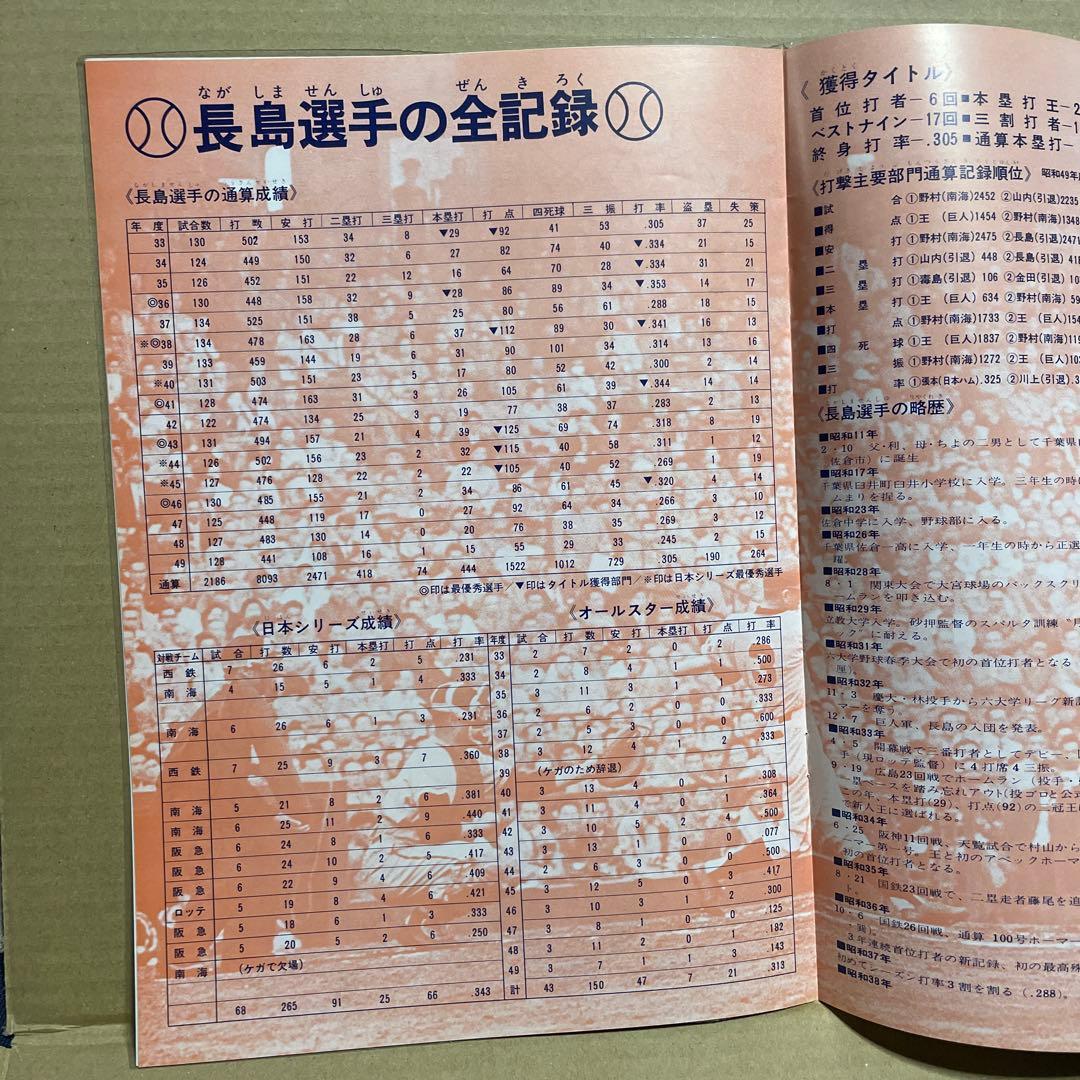 なが しま せん しゅ ぜん き ろく
長島選手の全記録
《長島選手の通算成績》
年度 試合数 打数 安打 二塁打 三塁打 本塁打 打点 四死球 三振 打率 盗塁 失策
33 130 502 153 34 8 ▼29 ▼92 41 53 .305 37 25
34 124 449 150 32 6 27 82 74 40 ▼.334 21 15
35 126 452 151 22 12 16 64 70 28 ▼.334 31 14
◎36 130 448 158 32 9 ▼28 86 89 34 ▼.353 14 17
37 134 525 151 38 5 25 80 56 61 .288 18 15
※◎38 134 478 163 28 6 37 ▼112 89 30 ▼.341 16 13
39 133 459 144 19 6 31 90 101 34 .314 13 16
※40 131 503 151 23 5 17 80 52 42 .300 2 14
◎41 128 474 163 31 3 26 105 61 39 ▼.344 14 14
42 122 474 134 25 3 19 77 38 37 .283 2 13
◎43 131 494 157 21 4 39 ▼125 69 74 .318 8 19
※44 126 502 156 23 2 32 ▼115 40 58 .311 1 12
※45 127 476 128 22 2 22 ▼105 40 52 .269 1 19
◎46 130 485 155 21 2 34 86 61 45 ▼.320 4 14
47 125 448 119 17 0 27 92 64 34 .266 3 10
48 127 483 130 14 0 20 76 38 35 .269 3 12
49 128 441 108 16 1 15 55 29 33 .245 2 15
通算 2186 8093 2471 418 74 444 1522 1012 729 .305 190 264
◎印は最優秀選手／▼印はタイトル獲得部門／※印は日本シリーズ最優秀選手
《日本シリーズ成績》
対戦チーム 試合 打数 安打 本塁打 打点 打率
西鉄 7 26 6 2 5 .231
南海 4 15 5 1 4 .333
南海 6 26 6 1 3 .231
西鉄 7 25 9 3 7 .360
南海 5 21 8 2 6 .381
南海 6 25 11 2 9 .440
阪急 6 24 8 1 6 .333
阪急 6 24 10 2 5 .417
阪急 6 22 9 4 6 .409
ロッテ 5 19 8 4 6 .421
阪急 5 18 6 1 3 .333
阪急 5 20 5 2 6 .250
南海 (ケガで欠場)
68 265 91 25 66 .343
《オールスター成績》
年度 試合 打数 安打 本塁打 打点 打率
33 2 7 2 0 2 .286
34 2 8 4 1 1 .500
35 3 11 3 1 1 .273
36 2 6 2 0 0 .333
37 2 5 3 0 0 .600
38 3 12 4 1 2 .333
39 (ケガのため辞退)
40 3 13 4 0 1 .308
41 3 11 4 0 1 .364
42 3 10 5 2 4 .500
43 .077
44 .500
45 3 12 5 0 3 .417
46 3 10 3 0 0 .300
47 3 8 1 0 0 .125
48 3 11 2 0 1 .182
49 3 7 1 1 3 .143
計 43 150 47 7 21 .313
《獲得タイトル》
首位打者－6回■本塁打王－2
ベストナイン－17回■三割打者－1
終身打率－.305■通算本塁打－
《打撃主要部門通算記録順位》 昭和49年
■試合①野村(南海)2452 ②山内(引退)2235
■得点①王(巨人)1454 ②野村(南海)1348
■安打①野村(南海)2475 ②長島(引退)2471
■二塁打①山内(引退) 448 ②長島(引退) 418
■三塁打①毒島(引退) 106 ②金田(引退) 10
■本塁打①王(巨人) 634 ②野村(南海) 59
■打点①野村(南海)1733 ②王(巨人)154
■四死球①王(巨人)1837 ②野村(南海)119
■三振①野村(南海)1272 ②王(巨人)10
■打率①張本(日本ハム).325 ②川上(引退).3
《長島選手の略歴》
■昭和11年
2・10 父・利、母・ちよの二男として千葉県
佐倉市)に誕生
■昭和17年
千葉県臼井町臼井小学校に入学。三年生の時に
ムまりを握る。
■昭和23年
佐倉中学に入学、野球部に入る。
■昭和26年
千葉県佐倉一高に入学、一年生の時から正選
躍。
■昭和28年
8・1 関東大会で大宮球場のバックスクリ
ームランを叩き込む。
■昭和29年
立教大学入学。砂押監督のスパルタ訓練“月
ック”に耐える。
■昭和31年
六大学野球春季大会で初の首位打者となる
厘)。
■昭和32年
11・3 慶大・林投手から六大学リーグ新記
マーを奪う。
12・7 巨人軍、長島の入団を発表。
■昭和33年
4・5 開幕戦で三番打者としてデビュー、
手(現ロッテ監督)に4打席4三振。
9・19 広島23回戦でホームラン(投手・
一塁ベースを踏み忘れアウト(投ゴロと公式
この年、本塁打(29)、打点(92)の二冠王
で新人王に選ばれる。
■昭和34年
6・25 阪神11回戦、天覧試合で村山から
マー第一号。王と初のアベックホーマ
初の首位打者となる。
■昭和35年
8・21 国鉄23回戦で、二塁走者藤尾を追
ト。
■昭和36年
10・6 国鉄26回戦、通算100号ホーマー
巽)。
3年連続首位打者の新記録、初の最高殊
■昭和37年
初めてシーズン打率3割を割る(.288)。
■昭和38年